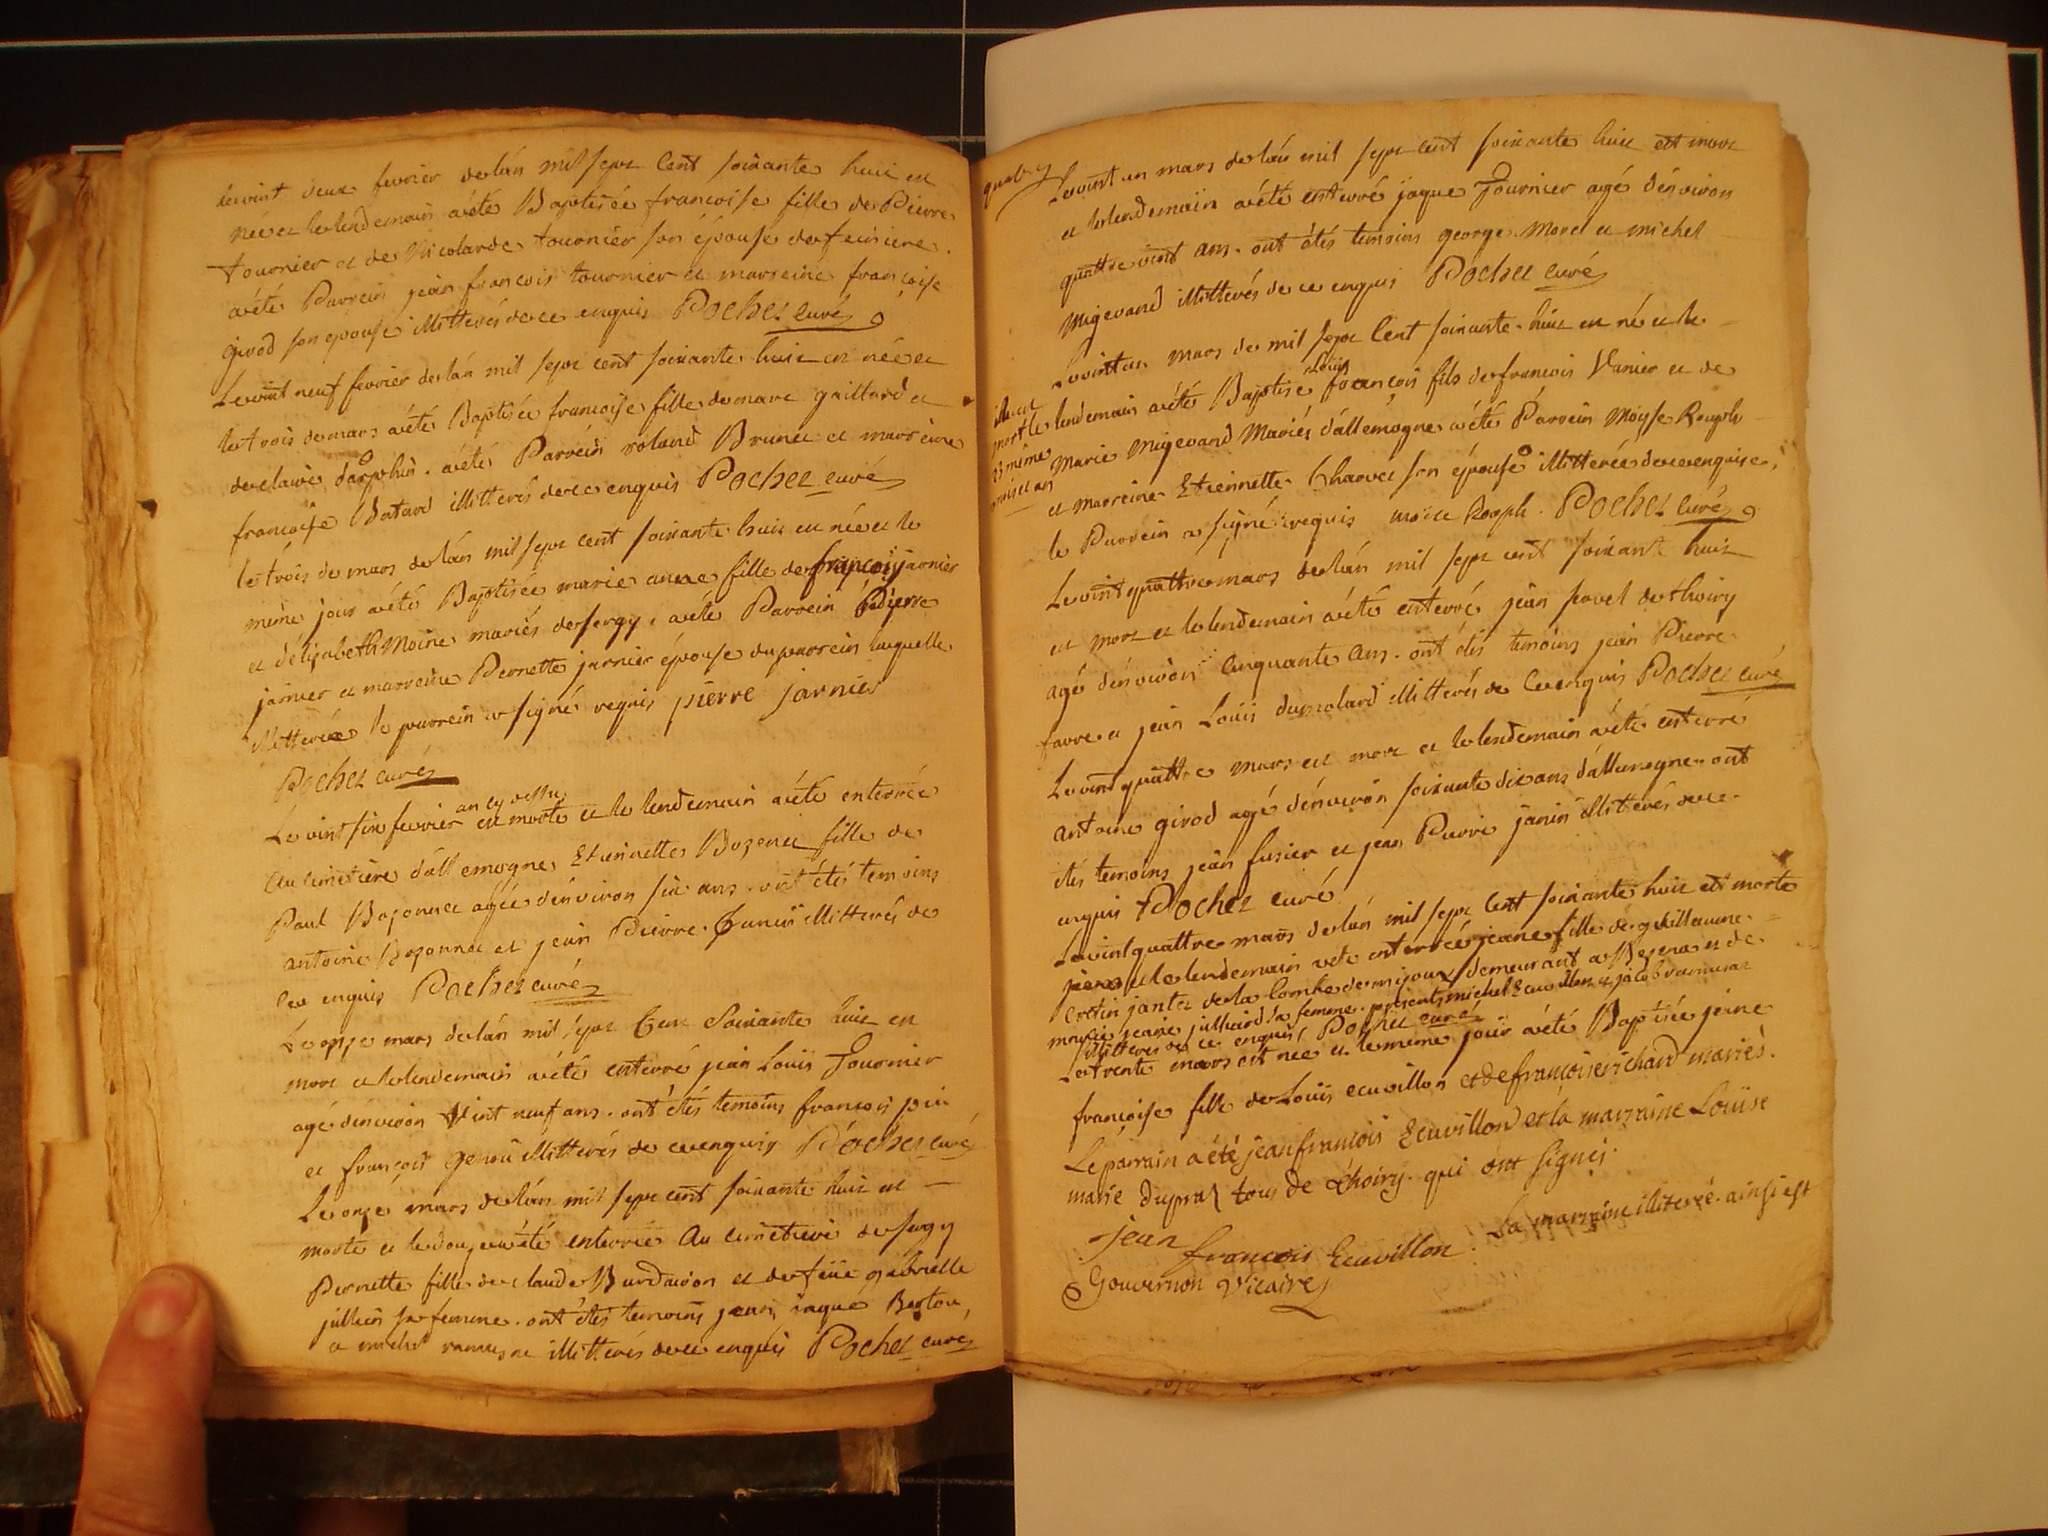 le vint deux fevrier de lán mil sept cent soixante huit est
née et le lendemain aété Baptisée francoise fille de Pierre
tournier et de Nicolarde tournier son épouse de feiniere.
aété Parrein jean francois tournier et marreine françoise
girod son epouse illitterés de ce enquis Pochet curé
Le vint neuf fevrier de lán mil sept cent soixante huit est née et
le trois de mars aété Baptisée francoise fille de marc gaillard et
de claire daophin. aété Parrein roland Brunet et marreine
francoise Batard illitterés de ce enquis Pochet curé
le trois de mars de lán mil sept cent soixante huit est née et le
même jour aété Baptisée marie anne fille de françois jarnier
et délizabeth Moine mariés de sergy. aété Parrein Pierre
jarnier et marreine Pernette jarnier épouse du parrein laquelle
illitterée le parrein a signé requis pierre jarnier
Pochet curé
an cy dessu
Le vint six fevrier est morte et le lendemain aété enterrée
au cimetière d'allemogne Etiennette Bozonet fille de
Paul Bozonnet agée dénviron six ans. ont étés temoins
antoine Bozonnet et jean Pierre Juniii illitterés de
ce enquis Pochet curé
Le onze mars de lán mil sept Cent Soixante huit est
mort et le lendemain aété enterré jean Louis Tournier
agé dénviron vint neuf ans. ont étés temoins françois piu
et françois genou illitterés de ce enquis Pochet curé
Le onze mars de lán mil sept cent soixante huit est
morte et le douze aété enterrée au cimetiere de sergy
Pernette fille de claude Burdairon et de feüe gabrielle
jullien sa femme. ont étés temoins jean jaque Berton,
et michel ramusat illitterés de ce enquis Pochet curé
Le vint un mars de lán mil sept cent soixante huit est mort
et le lendemain aété enterré jaque Tournier agé dénviron
quattre vint ans. ont étés temoins george Morel et michel
Migevand illitterés de ce enquis Pochet curé
Le vint un mars de mil sept Cent soixante huit est né et le
Loüis
lendemain aété Baptisé françois fils de francois Vanier et de
Marie Migevand Mariés d'allemogne aété Parrein Moyse Rouph
et marreine Etiennette Charvet son épouse illitterée de ce enquise,
le Parrein a signé requis moise Rooph. Pochet curé
il est
mort le
même
mois et an
Le vint quattre mars de lán mil sept cent soixante huit
est mort et le lendemain aété enterré jean favel de thoiry
agé dénviron cinquante ans. ont étés temoins jean Pierre
favre et jean Loüis dumolard illitterés de ce enquis Pochet curé
Le vint quattre mars est mort et le lendemain aété enterré
antoine girod agé dénviron soixante dix ans d'allemogne. ont
étés temoins jean fusier et jean Pierre janin illitterés de ce
enquis Pochet curé
Le vint quattre mars de lán mil sept Cent soixante huit est morte
et le lendemain aété enterrée jeane fille de guillaume
cretin jantet de la Combe de mijoux demeurant a et de
marie jeane julliard sa femme. présents michel Ecuvillon et jacob ramusat
illitterés de ce enquis Pochet curé
Le trente mars est née et le même jour aété Baptisée jeane
françoise fille de Loüis ecuvillon et de françoise richard mariés.
Le parrain a été jean francois Ecuvillon et la marraine Loüise
marie dupraz tous de Thoiry. qui ont signés.
La marraine illiterée. ainsi est
jean
francois Ecuvillon
Gouvernon Vicaire